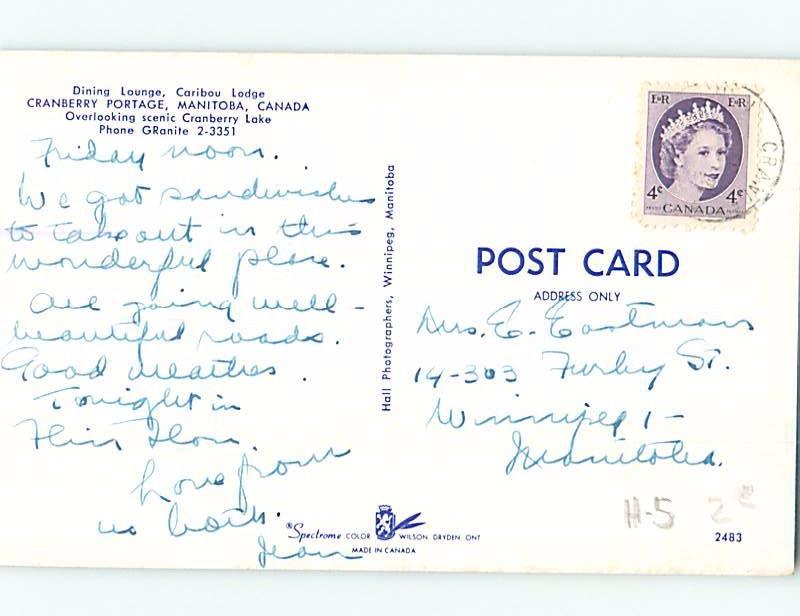 Dining Lounge, Caribou Lodge
CRANBERRY PORTAGE, MANITOBA, CANADA
Overlooking scenic Cranberry Lake
Phone GRanite 2-3351
Friday noon.
We got sandwiches
to take out in this
wonderful place.
All going well -
beautiful roads.
Good weather.
Tonight in
Flin Flon.
Love from
us both.
Jean
Hall Photographers, Winnipeg, Manitoba
E R E R
4¢ 4¢
CANADA
CRAN
POST CARD
ADDRESS ONLY
Mrs. E. Eastman
14-303 Furby St.
Winnipeg 1-
Manitoba.
H-5 2
Spectrome COLOR WILSON, DRYDEN, ONT
MADE IN CANADA
2483